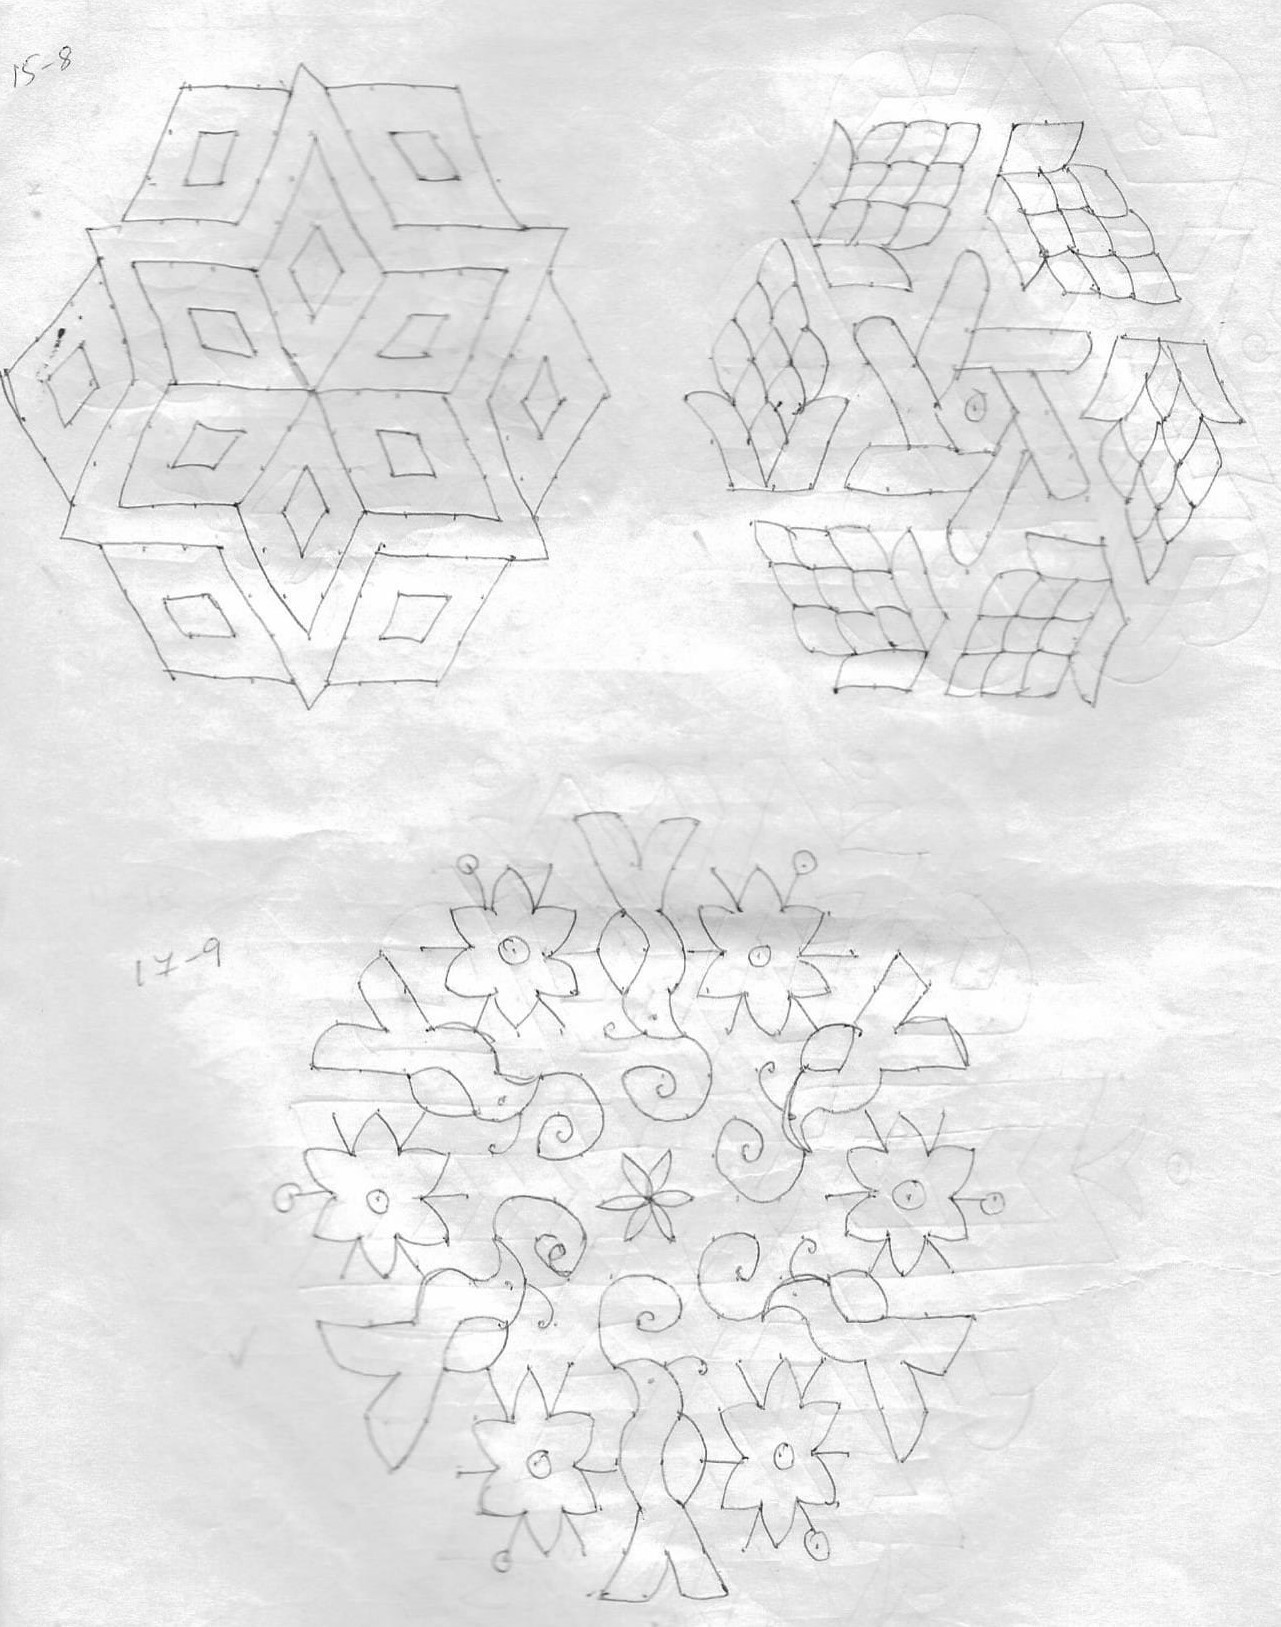 15-8
17-9